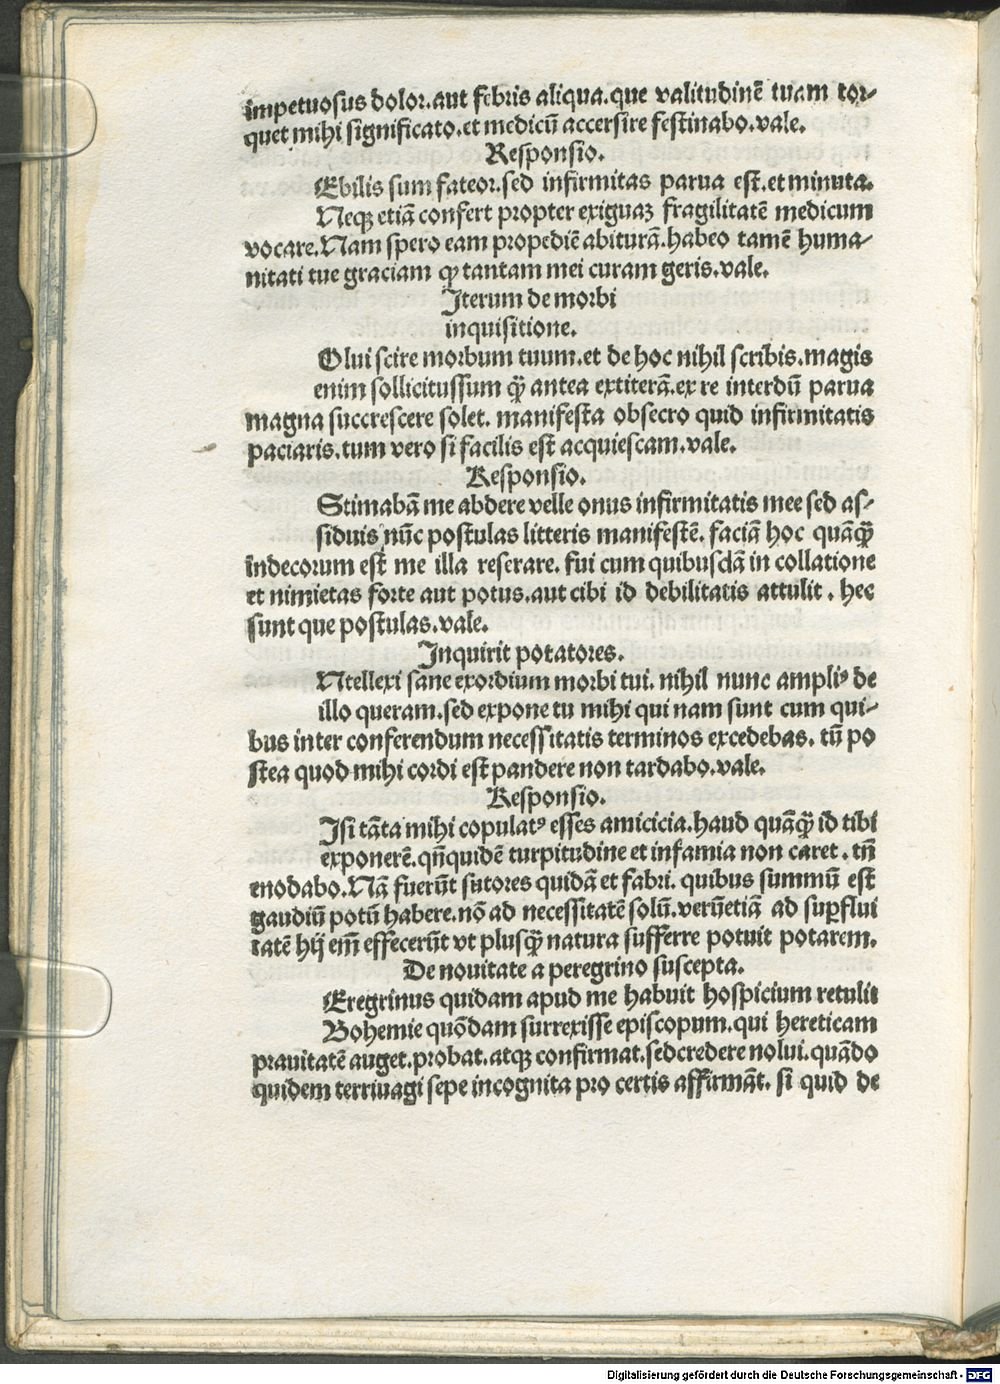 impetuosus dolor.aut febris aliqua.que valitudinē tuam tor⸗
quet mihi significato.et medicū accersire festinabo.vale.
Responsio.
Ebilis sum fateor.sed infirmitas parua est.et minuta.
Neqꝫ etiā confert propter exiguaꝫ fragilitatē medicum
vocare.Nam spero eam propediē abiturā.habeo tamē huma⸗
nitati tue graciam ꝙ tantam mei curam geris.vale.
Iterum de morbi
inquisitione.
Olui scire morbum tuum.et de hoc nihil scribis.magis
enim sollicitus sum q̄ꝫ antea extiterā.ex re interdū parua
magna succrescere solet. manifesta obsecro quid infirmitatis
paciaris.tum vero si facilis est acquiescam.vale.
Responsio.
Stimabā me abdere velle onus infirmitatis mee sed as⸗
siduis nūc postulas litteris manifestē. faciā hoc quāq̄ꝫ
indecorum est me illa reserare. fui cum quibusdā in collatione
et nimietas forte aut potus.aut cibi id debilitatis attulit. hec
sunt que postulas.vale.
Inquirit potatores.
Ntellexi sane exordium morbi tui. nihil nunc ampliꝰ de
illo queram.sed expone tu mihi qui nam sunt cum qui⸗
bus inter conferendum necessitatis terminos excedebas. tū po
stea quod mihi cordi est pandere non tardabo.vale.
Responsio.
Isi tāta mihi copulatꝰ esses amicicia.haud quāq̄ꝫ id tibi
exponerē.qn̄quidē turpitudine et infamia non caret. tn̄
enodabo.Nā fuerūt sutores quidā et fabri. quibus summū est
gaudiū potū habere.nō ad necessitatē solū.verūetiā ad suꝑflui
tatē hij em̄ effecerūt vt plusq̄ꝫ natura sufferre potuit potarem.
De nouitate a peregrino suscepta.
Eregrinus quidam apud me habuit hospicium retulit
Bohemie quōdam surrexisse episcopum.qui hereticam
prauitatē auget.probat.atqꝫ confirmat.sed credere nolui.quādo
quidem terriuagi sepe incognita pro certis affirmāt. si quid de
Digitalisierung gefördert durch die Deutsche Forschungsgemeinschaft - DFG